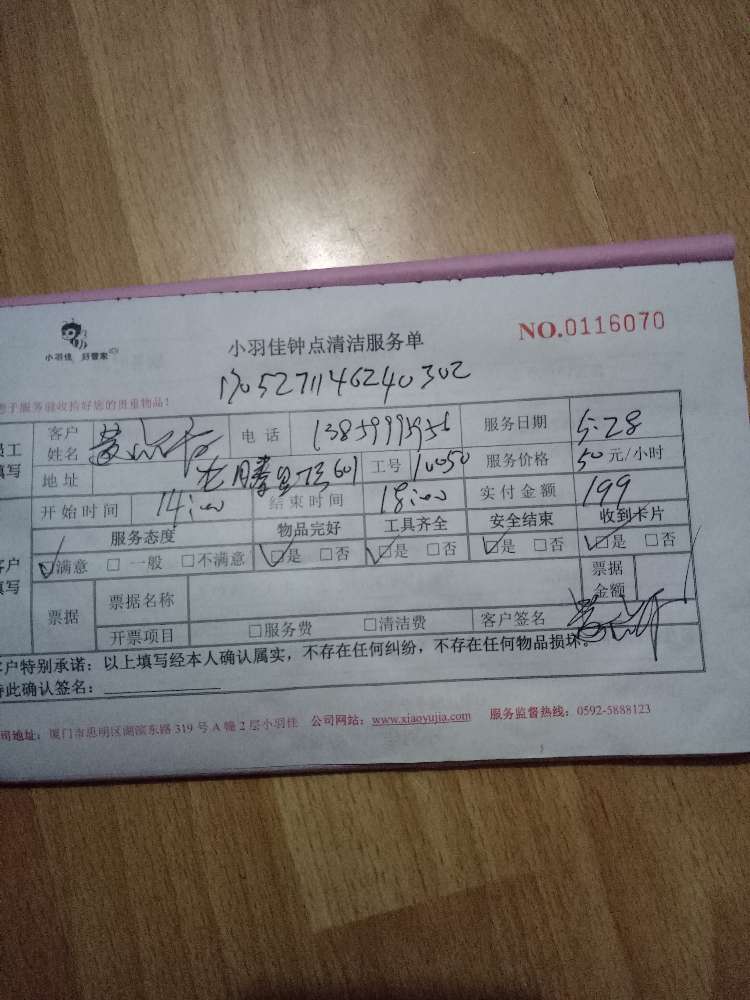 小羽佳 好管家
小羽佳钟点清洁服务单
NO.0116070
1705271146240302
您于服务前收拾好您的贵重物品!
员工填写 客户姓名 黄 电话 服务日期 5.28
地址 601 工号 10050 服务价格 50元/小时
开始时间 14:00 结束时间 18:00 实付金额 199
客户填写 服务态度 物品完好 工具齐全 安全结束 收到卡片
☑满意 □一般 □不满意 ☑是 □否 ☑是 □否 ☑是 □否 ☑是 □否
票据 票据名称 票据金额
开票项目 □服务费 □清洁费 客户签名
客户特别承诺:以上填写经本人确认属实,不存在任何纠纷,不存在任何物品损坏。
特此确认签名:
公司地址:厦门市思明区湖滨东路319号A幢2层小羽佳 公司网站:www.xiaoyujia.com 服务监督热线:0592-5888123